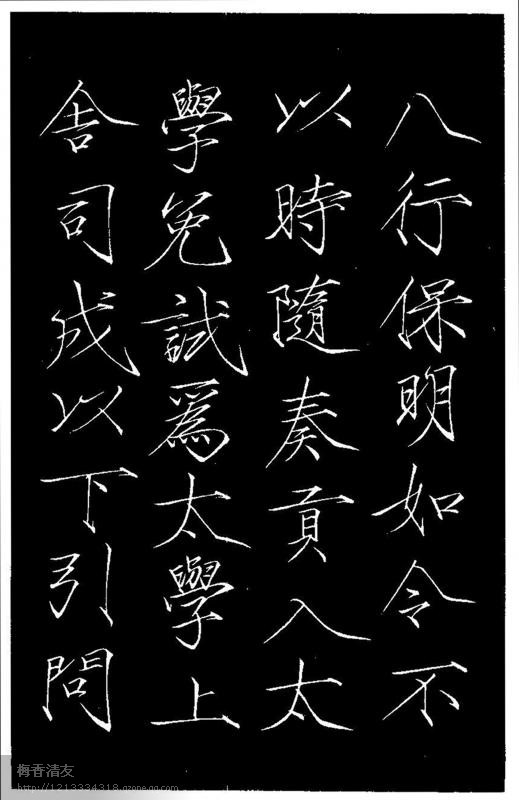 八行保明如令不
以時隨奏貢入太
學免試為太學上
舍司成以下引問
梅香清友
http://1213334318.qzone.qq.com